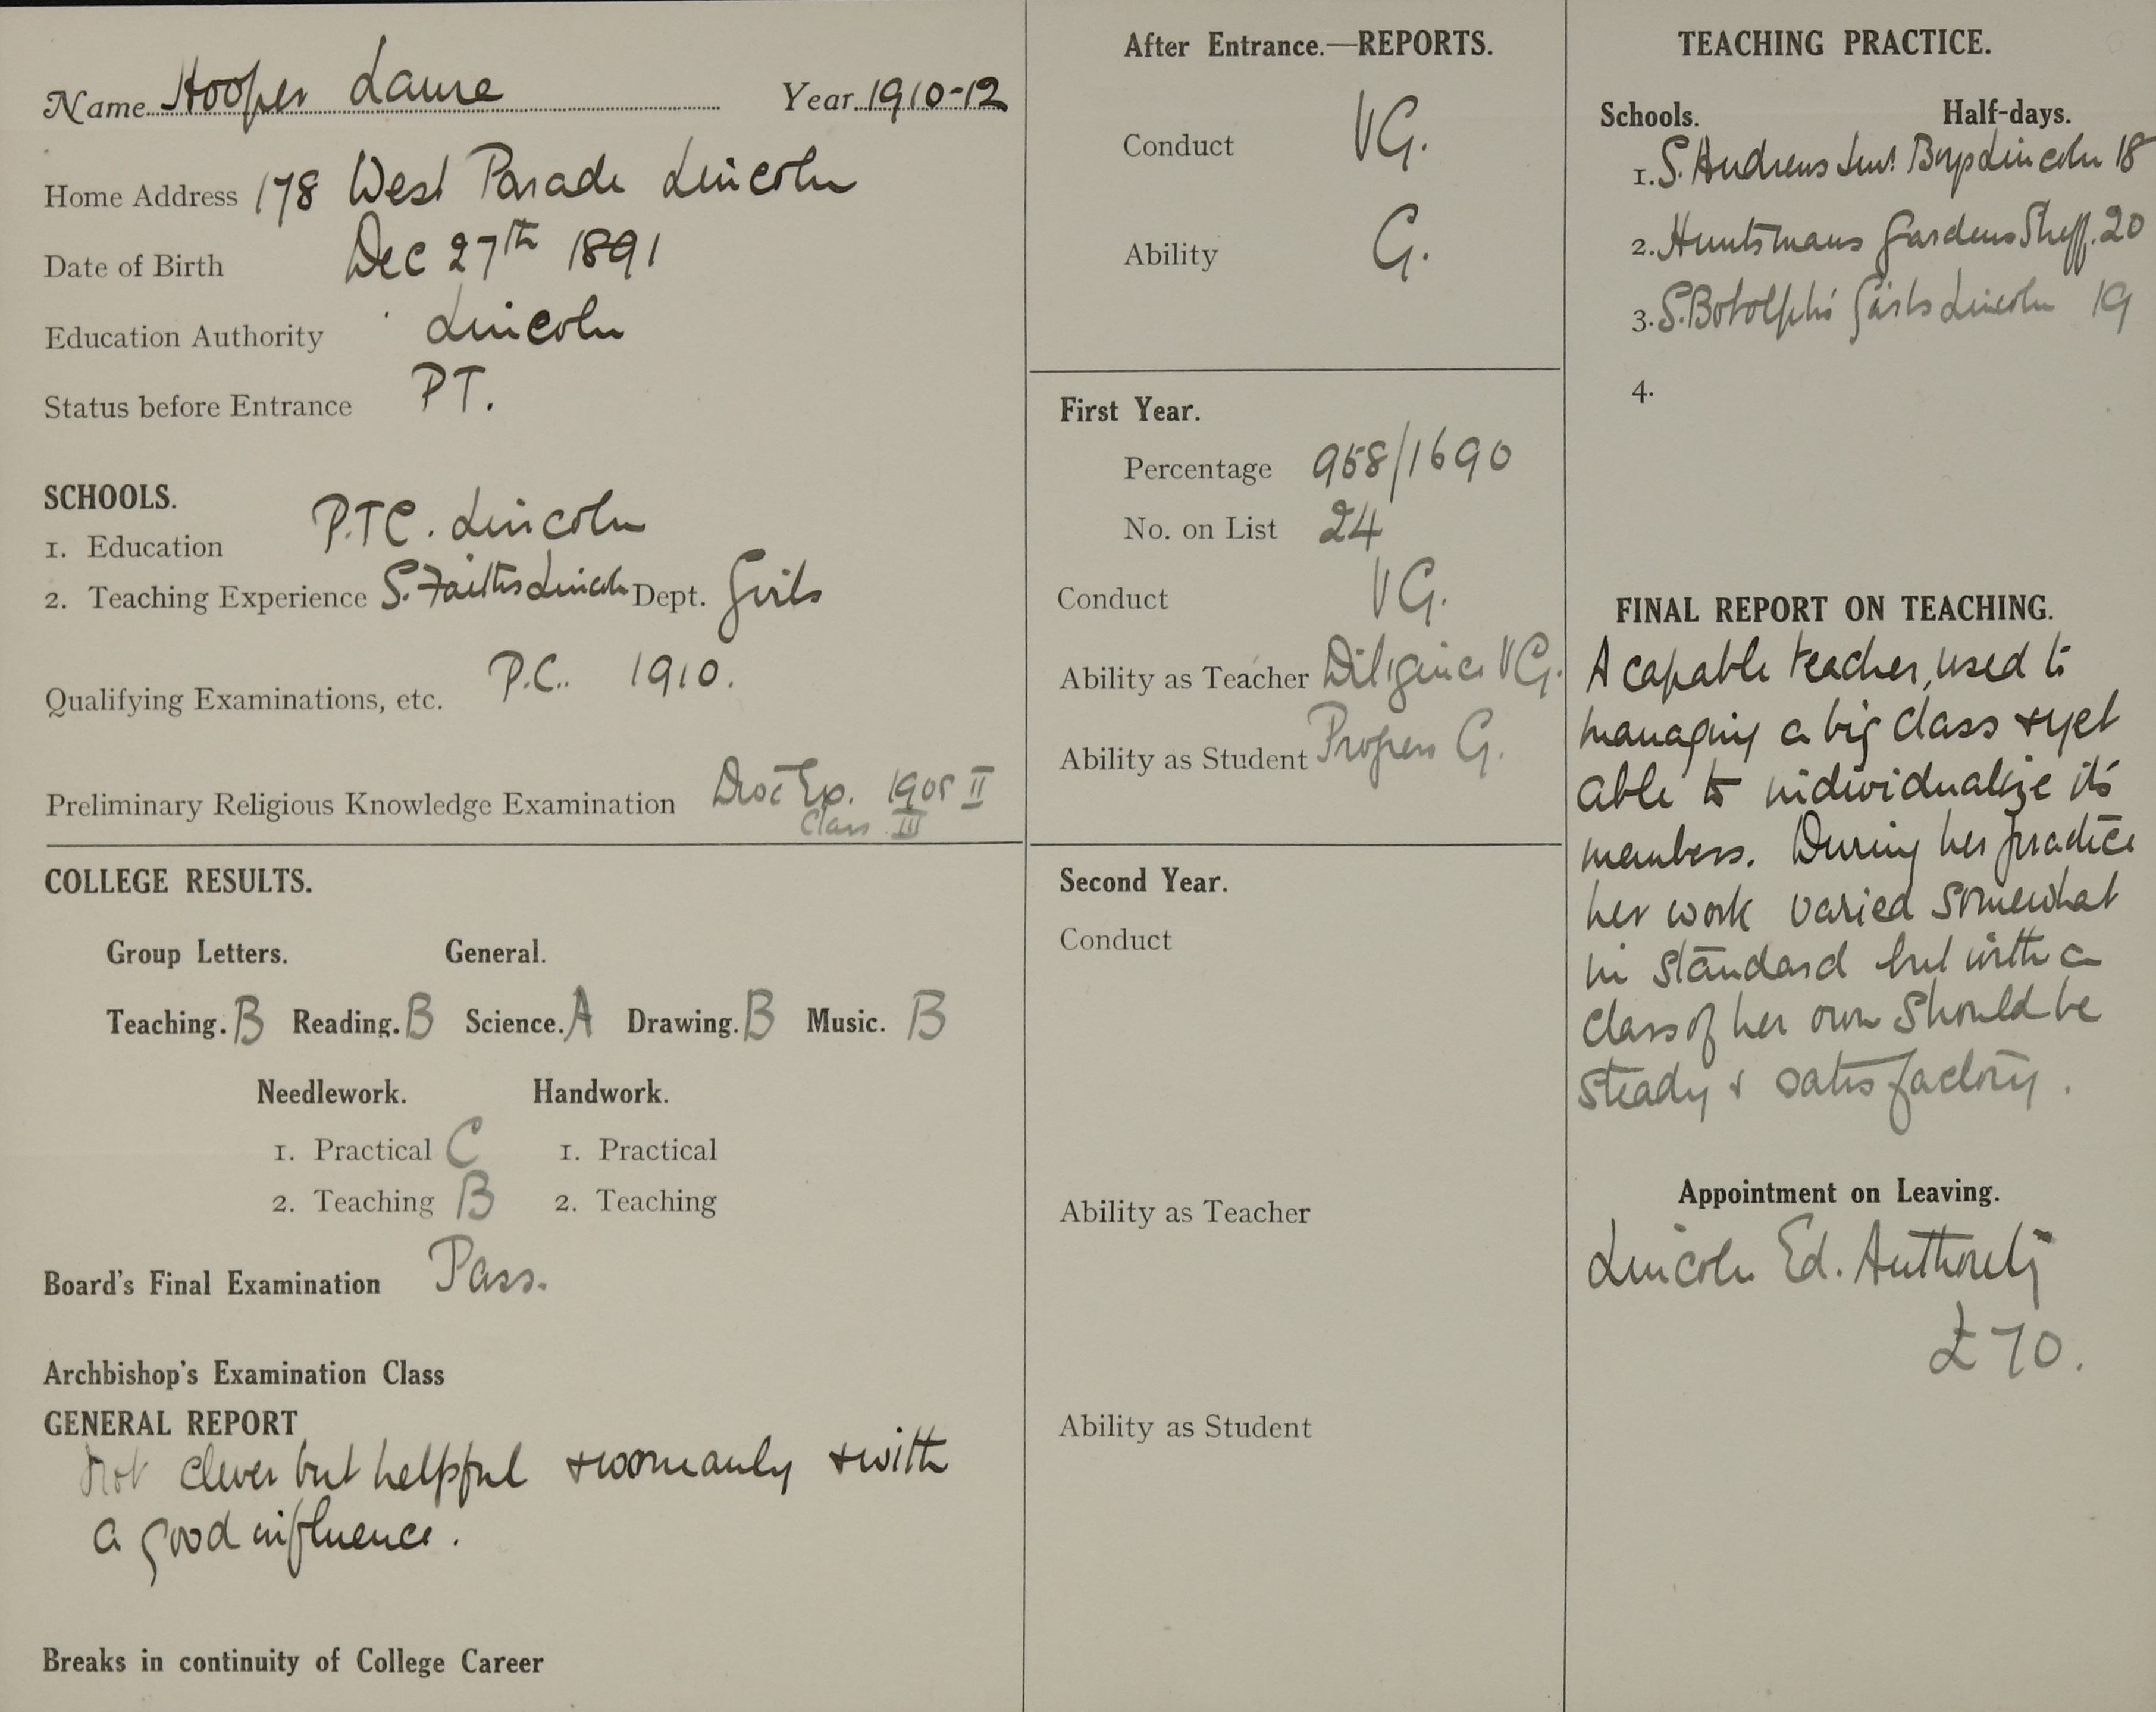 Name Hooper Laura Year 1910-12
Home Address 178 West Parade Lincoln
Date of Birth Dec 27th 1891
Education Authority Lincoln
Status before Entrance PT.
SCHOOLS.
1. Education P.T.C. Lincoln
2. Teaching Experience S. Faiths Lincoln Dept. Girls
Qualifying Examinations, etc. P.C. 1910.
Preliminary Religious Knowledge Examination Dioc Ex. II
Class III
COLLEGE RESULTS.
Group Letters. General.
Teaching. B Reading. B Science. A Drawing. B Music. B
Needlework. Handwork.
1. Practical C 1. Practical
2. Teaching B 2. Teaching
Board's Final Examination Pass.
Archbishop's Examination Class
GENERAL REPORT
Not clever but helpful & womanly & with
a good influence.
Breaks in continuity of College Career
After Entrance.—REPORTS.
Conduct VG.
Ability G.
First Year.
Percentage 958/1690
No. on List 24
Conduct VG.
Ability as Teacher Diligence VG.
Ability as Student Progress G.
Second Year.
Conduct
Ability as Teacher
Ability as Student
TEACHING PRACTICE.
Schools. Half-days.
1. S. Andrews Boys Lincoln 18
2. Huntsmans Gardens Sheff. 20
3. S. Botolph's Girls Lincoln 19
4.
FINAL REPORT ON TEACHING.
A capable teacher, used to
managing a big class & yet
able to individualize its
members. During her practice
her work varied somewhat
in standard but with a
class of her own should be
steady & satisfactory.
Appointment on Leaving.
Lincoln Ed. Authority
£70.